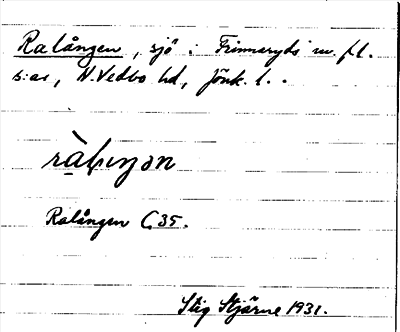 Ralången, sjö i Frinnaryds m. fl.
s:ar, N. Vedbo hd, Jönk. l.
Ralången C 35.
Stig Stjärne 1931.